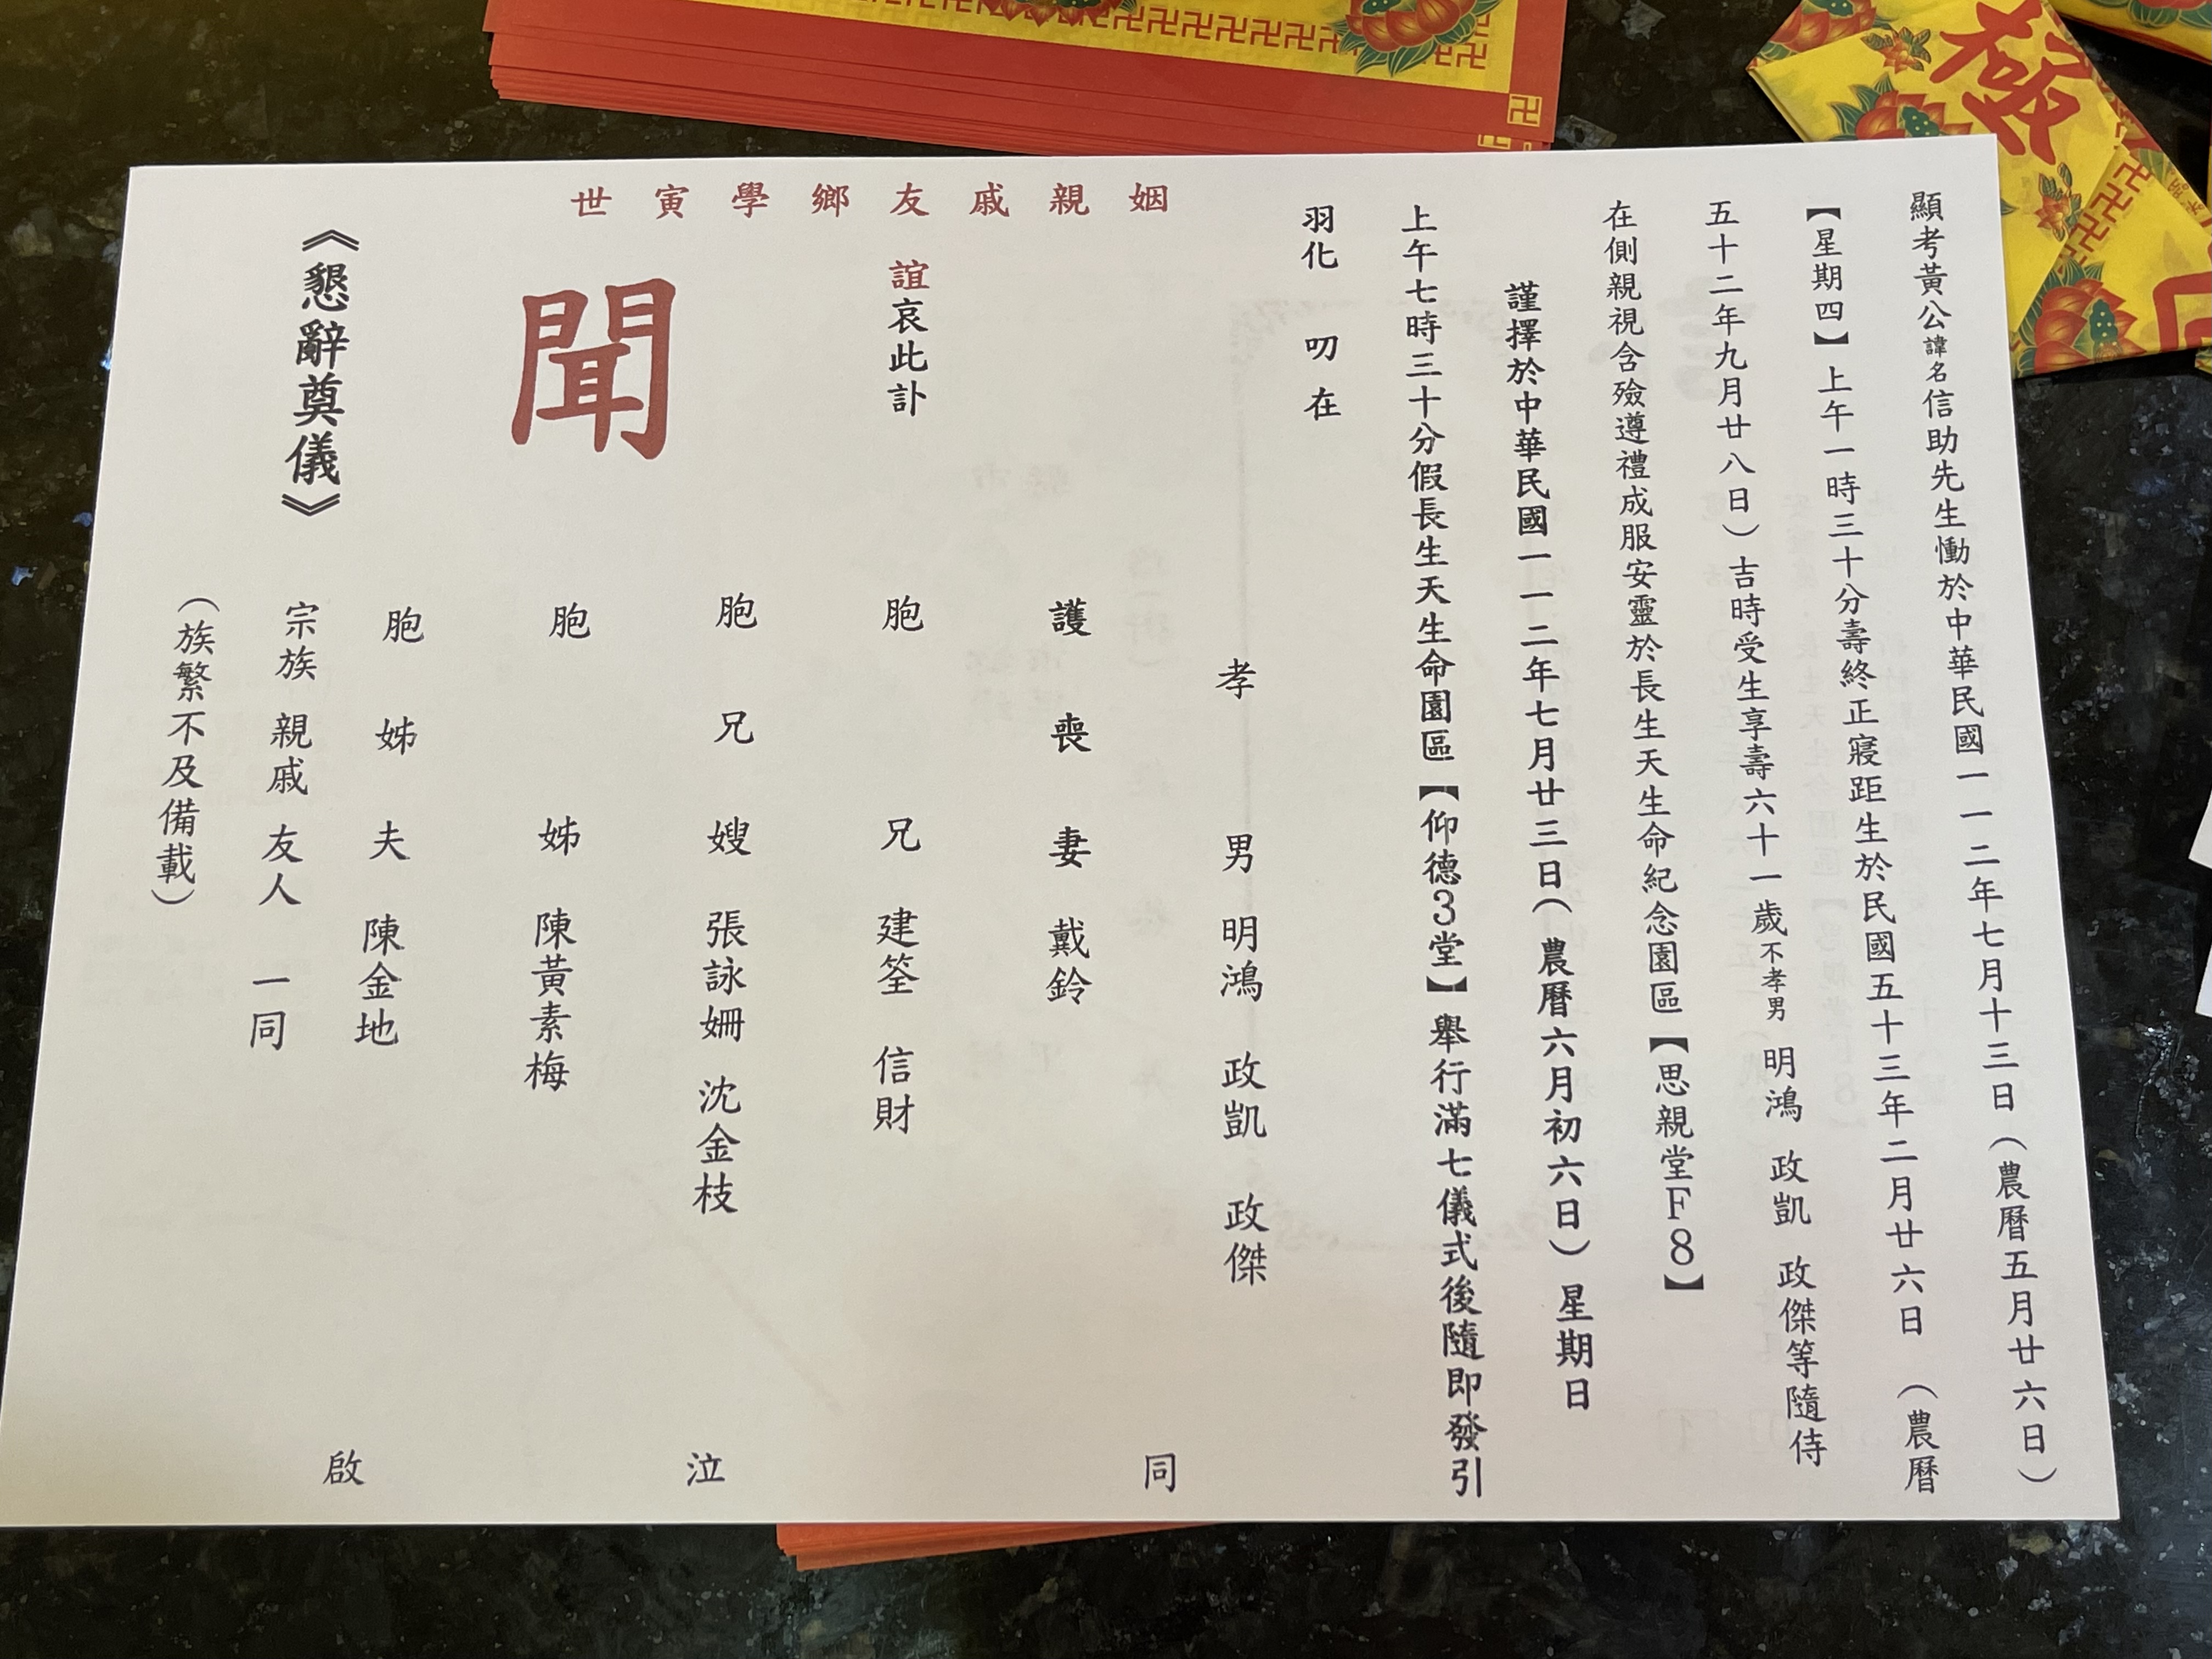 顯考黃公諱名信助先生慟於中華民國一一二年七月十三日（農曆五月廿六日）
【星期四】上午一時三十分壽終正寢距生於民國五十三年二月廿六日（農曆
五十二年九月廿八日）吉時受生享壽六十一歲不孝男 明鴻 政凱 政傑等隨侍
在側親視含殮遵禮成服安靈於長生天生命紀念園區【思親堂F8】
謹擇於中華民國一一二年七月廿三日（農曆六月初六日）星期日
上午七時三十分假長生天生命園區【仰德3堂】舉行滿七儀式後隨即發引
羽化 叨在
姻親戚友鄉學寅世
誼哀此訃
聞
《懇辭奠儀》
孝男 明鴻 政凱 政傑
護喪妻 戴鈴
胞兄 建筌 信財
胞兄嫂 張詠姍 沈金枝
胞姊 陳黃素梅
胞姊夫 陳金地
宗族 親戚 友人 一同
（族繁不及備載）
同泣啟
極